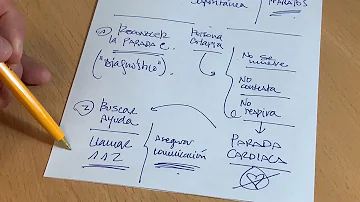 espontánea
① Reconocer
la PARADA C.
("Diagnóstico")
Persona
No se
mueve
No
contesta
No
respira
② Buscar
Ayuda
Llamar
112
Asegurar
comunicación
PARADA
CARDIACA